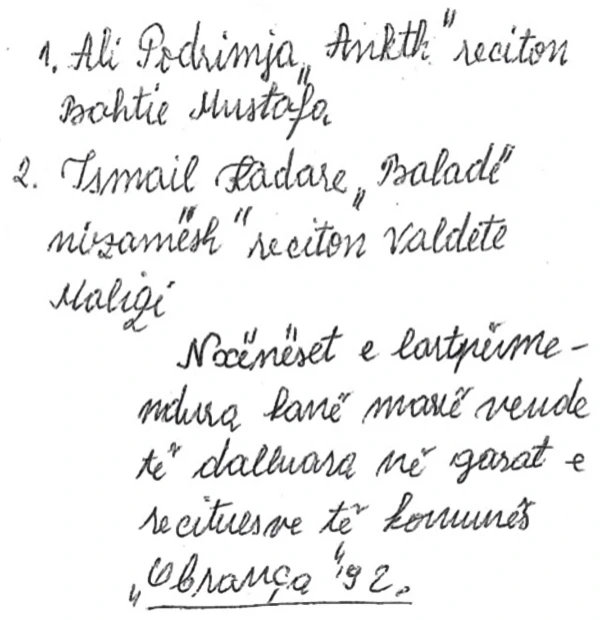 1. Ali Podrimja „Ankth" reciton
Bahtie Mustafa
2. Ismail Kadare „Baladë
nizamësh" reciton Valdete
Maliqi
Nxënëset e lartpërme-
ndura kanë marë vende
të dalluara në garat e
recituesve të komunës
„Obrança" 92.